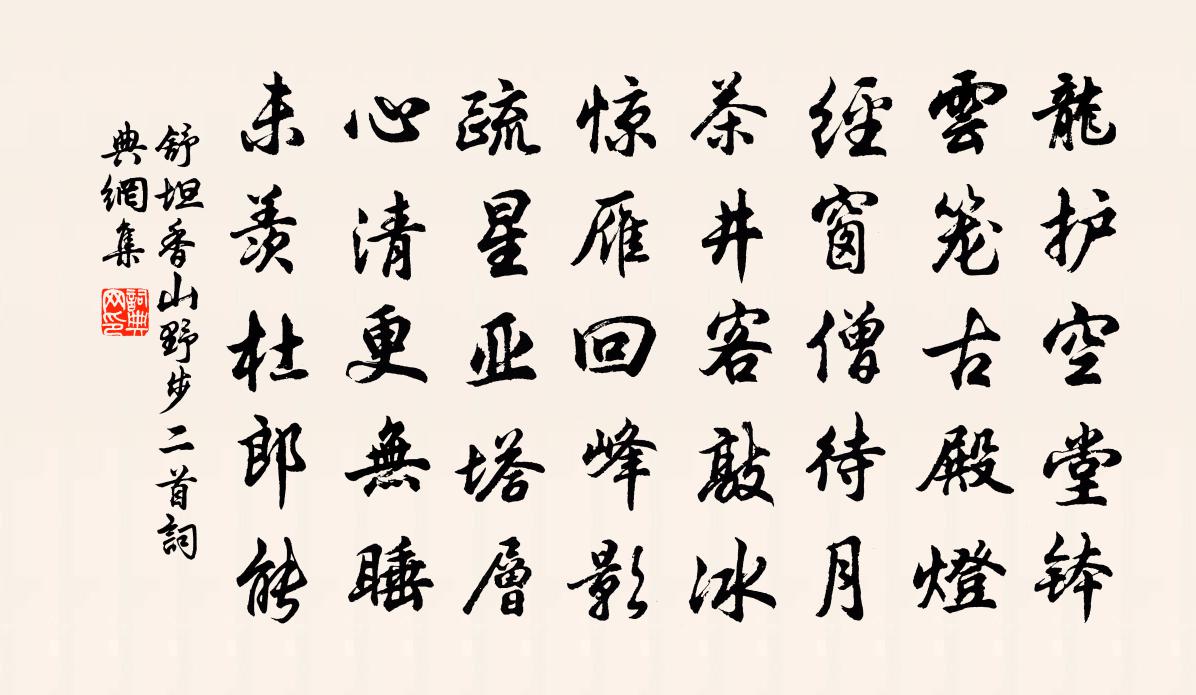 龍护空堂钵
雲笼古殿燈
經窗僧待月
茶井客敲冰
惊雁回峰影
疏星亚塔層
心清更無睡
未羡杜郎能
舒坦香山野步二首詞
典網集
詞典
网印